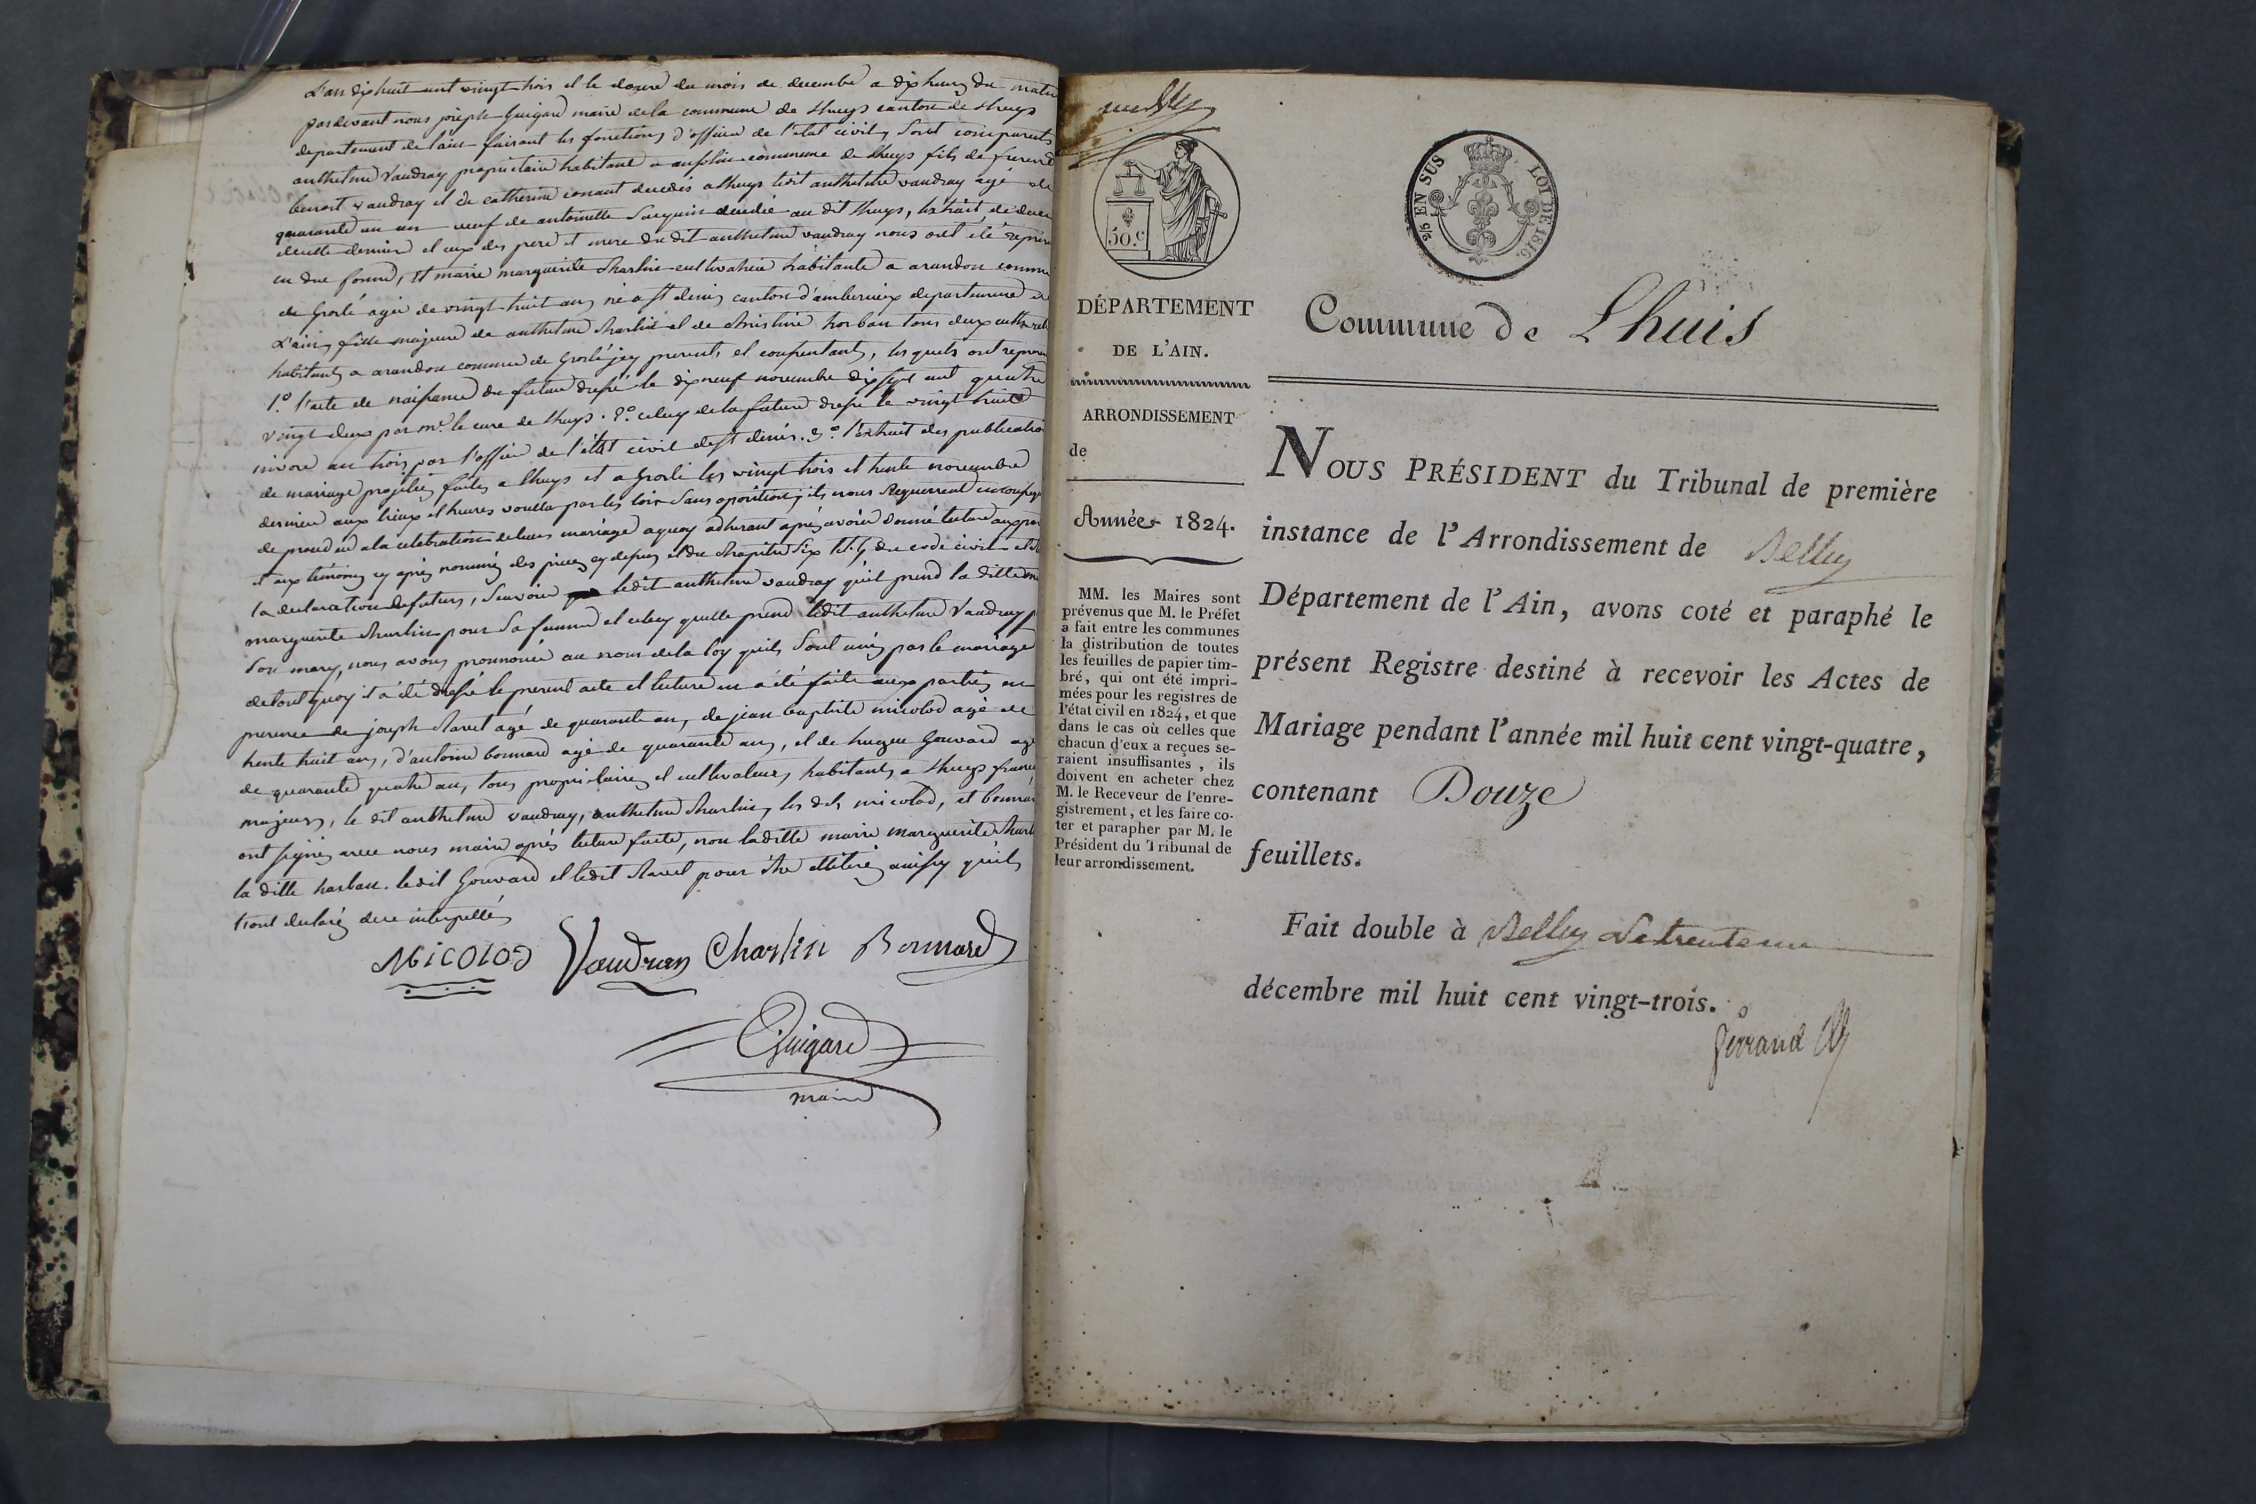 L'an dix huit cent vingt trois et le douze du mois de decembre a dix heures du matin
pardevant nous joseph Guigard maire de la commune de Lhuys canton de Lhuys
departement de l'ain faisant les fonctions d'officier de l'etat civil, sont comparents
anthelme Vaudray proprietaire habitant a commune de Lhuys fils de
benoit vaudray et de catherine conant decedés a Lhuys ledit anthelme vaudray agé de
quarante un ans veuf de antoinette decedée au dit Lhuys, de
dernier et ceux des pere et mere du dit anthelme vaudray nous ont été
en due forme, et marie marguerite Charlin cultivatrice habitante a arandon
de Grolé agée de vingt huit ans née a st denis canton d'amberieux departement de
L'ain, fille majeure de anthelme Charlin et de christine horbau tous deux
habitants a arandon commune de Groslé jcy presents et consentants, lesquels ont
1.° l'acte de naissance du futur dressé le dix neuf novembre dix sept cent quatre
vingt deux par mr. le cure de Lhuys. 2.° celuy de la future dressé le vingt huit
nivose an trois par l'officier de l'état civil de st denis. 3.° l'extrait des publications
de mariage projetté faites a Lhuys et a Groslé les vingt trois et trente novembre
dernier aux lieux et heures voullu par les loix sans oposition; ils nous Requerrent
de proceder a la celebration de leurs mariage a quoy adherant aprés avoir donné lecture aux
et aux témoins cy aprés nommés des pieces cy dessus et du chapitre six du code civil
la declaration des futurs, Scavoir ledit anthelme vaudray qu'il prend la ditte
marguerite Charlin pour Sa femme et celley qu'elle prend ledit anthelme Vaudray
Son mary, nous avons prononcé au nom de la loy qu'ils Sont unis par le mariage
de tout quoy il a été dressé le present acte et lecture en a été faite aux parties en
presence de joseph Clavel agé de quarante ans, de jean baptiste micolod agé de
trente huit ans, d'antoine bonnard agé de quarante ans, et de hugue Gouvard
de quarante quatre ans, tous proprietaires et cultivateurs, habitants a Lhuys
majeurs, le dit anthelme vaudray, anthelme Charlin, les dts micolod, et
ont signés avec nous maire aprés lecture faite, non la ditte marie marguerite
la ditte horbau. ledit Gouvard et ledit Clavel pour être ainsy qu'ils
l'ont declarés de ce interpellés
MICOLOD Vaudray Charlin Bonnard
Guigard
maire
50.c
2/5 EN SUS
LOI DE 1816.
DÉPARTEMENT
DE L'AIN.
ARRONDISSEMENT
de
Année 1824.
MM. les Maires sont
prévenus que M. le Préfet
a fait entre les communes
la distribution de toutes
les feuilles de papier tim-
bré, qui ont été impri-
mées pour les registres de
l'état civil en 1824, et que
dans le cas où celles que
chacun d'eux a reçues se-
raient insuffisantes, ils
doivent en acheter chez
M. le Receveur de l'enre-
gistrement, et les faire co-
ter et parapher par M. le
Président du Tribunal de
leur arrondissement.
Commune de Lhuis
NOUS PRÉSIDENT du Tribunal de première
instance de l'Arrondissement de Belley
Département de l'Ain, avons coté et paraphé le
présent Registre destiné à recevoir les Actes de
Mariage pendant l'année mil huit cent vingt-quatre,
contenant Douze
feuillets.
Fait double à Belley Le trente un
décembre mil huit cent vingt-trois.